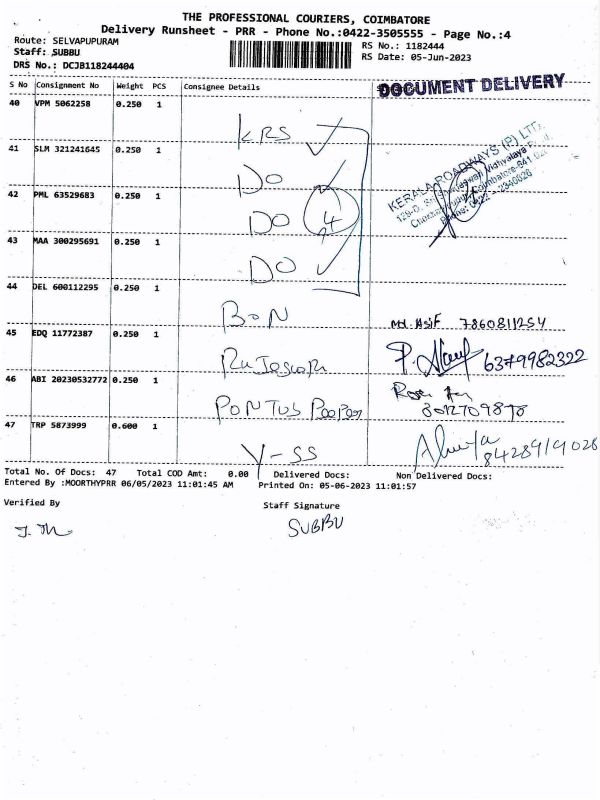 THE PROFESSIONAL COURIERS, COIMBATORE
Delivery Runsheet - PRR - Phone No.:0422-3505555 - Page No.:4
Route: SELVAPUPURAM
RS No.: 1182444
Staff: SUBBU
RS Date: 05-Jun-2023
DRS No.: DCJB118244404
S No Consignment No Weight PCS Consignee Details
DOCUMENT DELIVERY
40 VPM 5062258 0.250 1 KRS
41 SLM 321241645 0.250 1 DO
KERALA ROADWAYS (P) LTD.
42 PML 63529683 0.250 1 DO 4
43 MAA 300295691 0.250 1 DO
44 DEL 600112295 0.250 1 BON Md. Asif 7860811254
45 EDQ 11772387 0.250 1 6379982322
46 ABI 20230532772 0.250 1 PONTUS
47 TRP 5873999 0.600 1 Y-SS 8428919028
Total No. Of Docs: 47 Total COD Amt: 0.00 Delivered Docs: Non Delivered Docs:
Entered By :MOORTHYPRR 06/05/2023 11:01:45 AM Printed On: 05-06-2023 11:01:57
Verified By Staff Signature
SUBBU